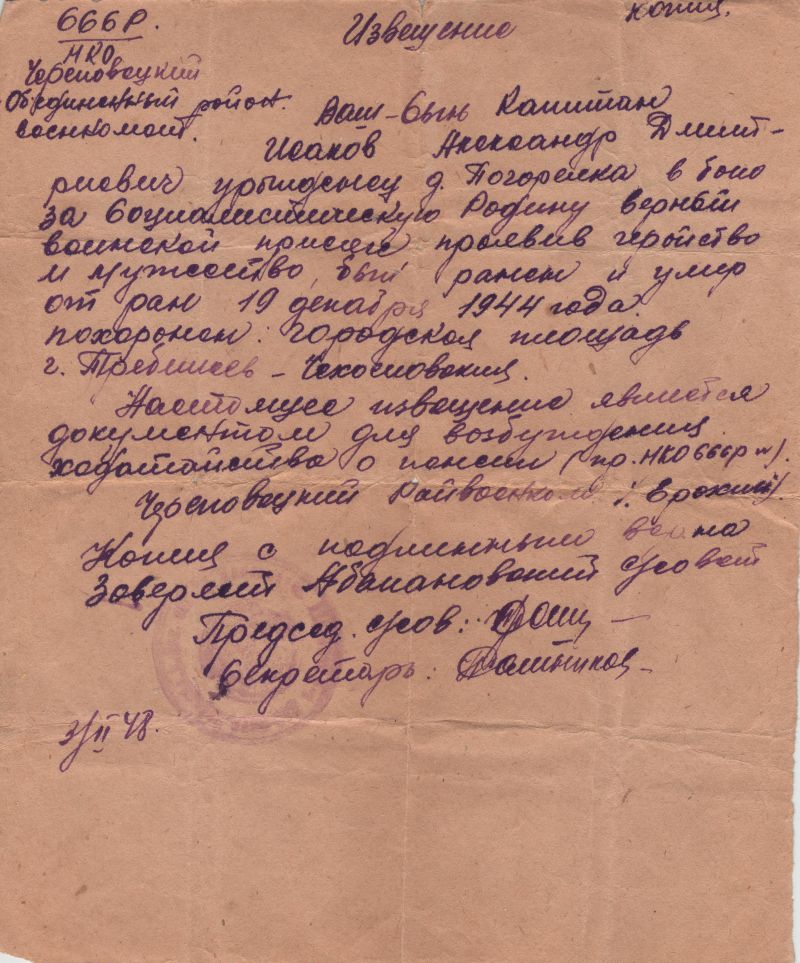 копия.
666Р.
НКО
Извещение
Череповецкий
Объединенный район.
военкомат.
Ваш – Сынь Капитан
Исаков Александр Дмит-
риевич урожденец д. Погорелка в бою
за Социалистическую Родину верный
воинской присяге проявив геройство
и мужество, был ранен и умер
от ран 19 декабря 1944 года.
похоронен: городская площадь
г. Требишев – Чехословакия.
Настоящее извещение является
документом для возбуждения
ходатайства о пенсии (пр. НКО 666Р).
Череповецкий Райвоенком /: Ерохин/.
Копия с подлинным верна
Заверяет Абакановский с/совет
Председ. с/сов:
Секретарь:
3/II 48.